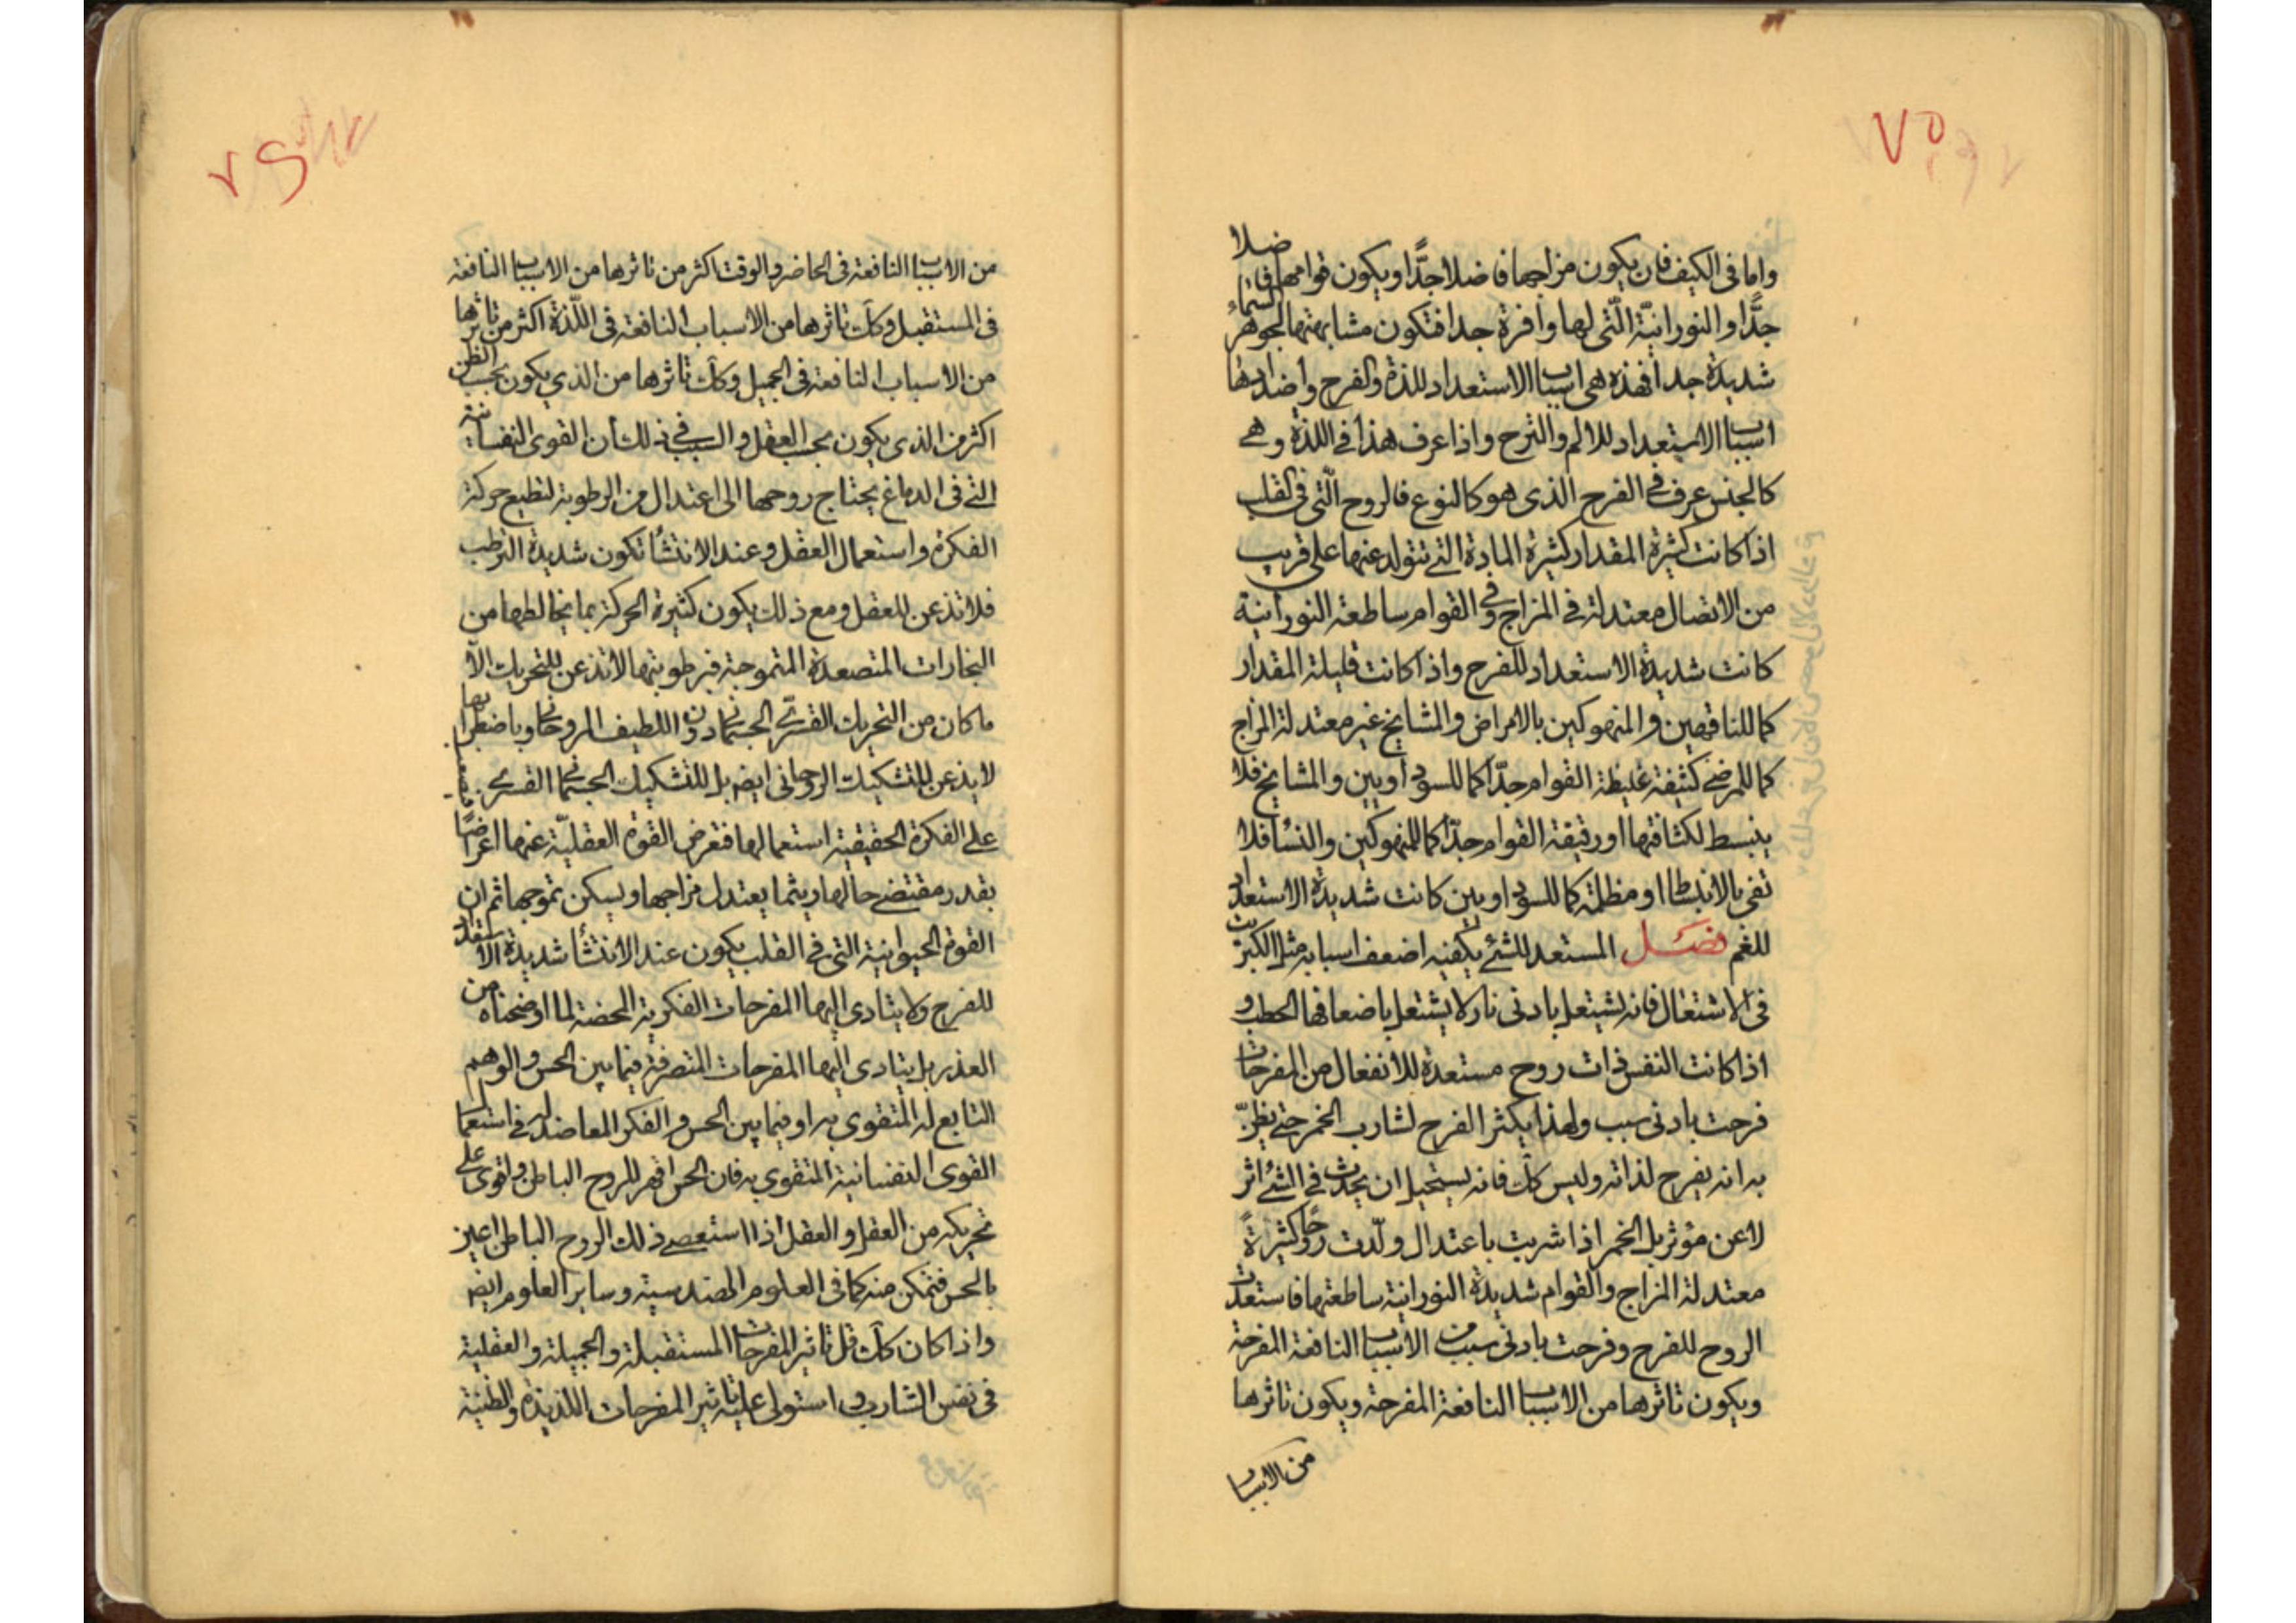 ٧٥
واما فى الكيف فان يكون مزاجها فاضلا جدًّا ويكون قوامها فاضلا
جدًّا والنورانيّة الّتى لها وافرة جدا فتكون مشابهتها لجوهر السّماء
شديدة جدا فهذه هى اسباب الاستعداد للذة والفرح واضدادها
اسباب الاستعداد للالم والترح واذا عرف هذا فى اللذة وهى
كالجنس عرف فى الفرح الذى هو كالنوع فالروح الّتى فى القلب
اذا كانت كثيرة المقدار كثيرة المادة التى تتولد عنها على قريب
من الاتصال معتدلة فى المزاج وفى القوام ساطعة النورانية
كانت شديدة الاستعداد للفرح واذا كانت قليلة المقدار
كما للناقهين والمنهوكين بالامراض والمشايخ غير معتدلة المزاج
كما للمرضى كثيفة غليظة القوام جدّا كما للسوداويين والمشايخ فلا
ينبسط لكثافتها او رقيقة القوام جدّا كما للمنهوكين والنساء فلا
تفى بالانبساط او مظلمة كما للسوداويين كانت شديدة الاستعداد
للغم فصل المستعد للشئ يكفيه اضعف اسبابه مثل الكبريت
فى الاشتعال فانه يشتعل بادنى نار لا يشتعل باضعافها الحطب و
اذا كانت النفس ذات روح مستعدة للانفعال من المفرحات
فرحت بادنى سبب ولهذا يكثر الفرح لشارب الخمر حتى يظنّ
به انه يفرح لذاته وليس كك فانه يستحيل ان يحدث فى الشئ اثر
لا عن مؤثر بل الخمر اذا شربت باعتدال ولّدت روحًا كثيرةً
معتدلة المزاج والقوام شديدة النورانية ساطعتها فاستعدت
الروح للفرح وفرحت بادنى سبب من الاسباب النافعة المفرحة
ويكون تاثرها من الاسباب النافعة المفرحة ويكون تاثرها
من الاسباب
من الاسباب النافعة فى الحاضر والوقت اكثر من تاثرها من الاسباب النافعة
فى المستقبل وكك تاثرها من الاسباب النافعة فى اللّذة اكثر من تاثرها
من الاسباب النافعة فى الجميل وكك تاثرها من الذي يكون بحسب الظن
اكثر من الذى يكون بحسب العقل والسبب فى ذلك ان القوى النفسانية
التى فى الدماغ يحتاج روحها الى اعتدال من الرطوبة لتطيع حركة
الفكرة واستعمال العقل وعند الانتشاء تكون شديدة الترطب
فلا تذعن للعقل ومع ذلك يكون كثيرة الحركة بما يخالطها من
البخارات المتصعدة المتموجة فبرطوبتها لا تذعن للتحريك الّا
ما كان من التحريك القسرىّ الجسمانى دون اللطيف الروحانى وباضطرابها
لا يذعن للتشكيك الروحانى ايضه بل للتشكيك الجسمانى القسرى
على الفكرة الحقيقية استعمالها فتعرض القوة العقليّة عنها اعراضًا
بقدر مقتضى حالها ريثما يعتدل مزاجها ويسكن تموجها ثم ان
القوة الحيوانية التى فى القلب يكون عند الانتشاء شديدة الاستعداد
للفرح ولا يتادى اليها المفرحات الفكرية المحضة لما اوضحناه من
العذر بل يتادى اليها المفرحات المتصرفة فيما بين الحس والوهم
التابع له المتقوى به او فيما بين الحس والفكر المعاضد له فى استعمال
القوى النفسانية المتقوى به فان الحس اقهر للروح الباطن واقوى على
تحريكه من العقل والعقل اذا استعصى ذلك الروح الباطن اعين
بالحس فتمكن منه كما فى العلوم الهندسية وساير العلوم ايضه
واذا كان كك قل تاثير المفرحات المستقبلة والجميلة والعقلية
فى نفس الشارب واستولى عليه تاثير المفرحات اللذيذة والظنية